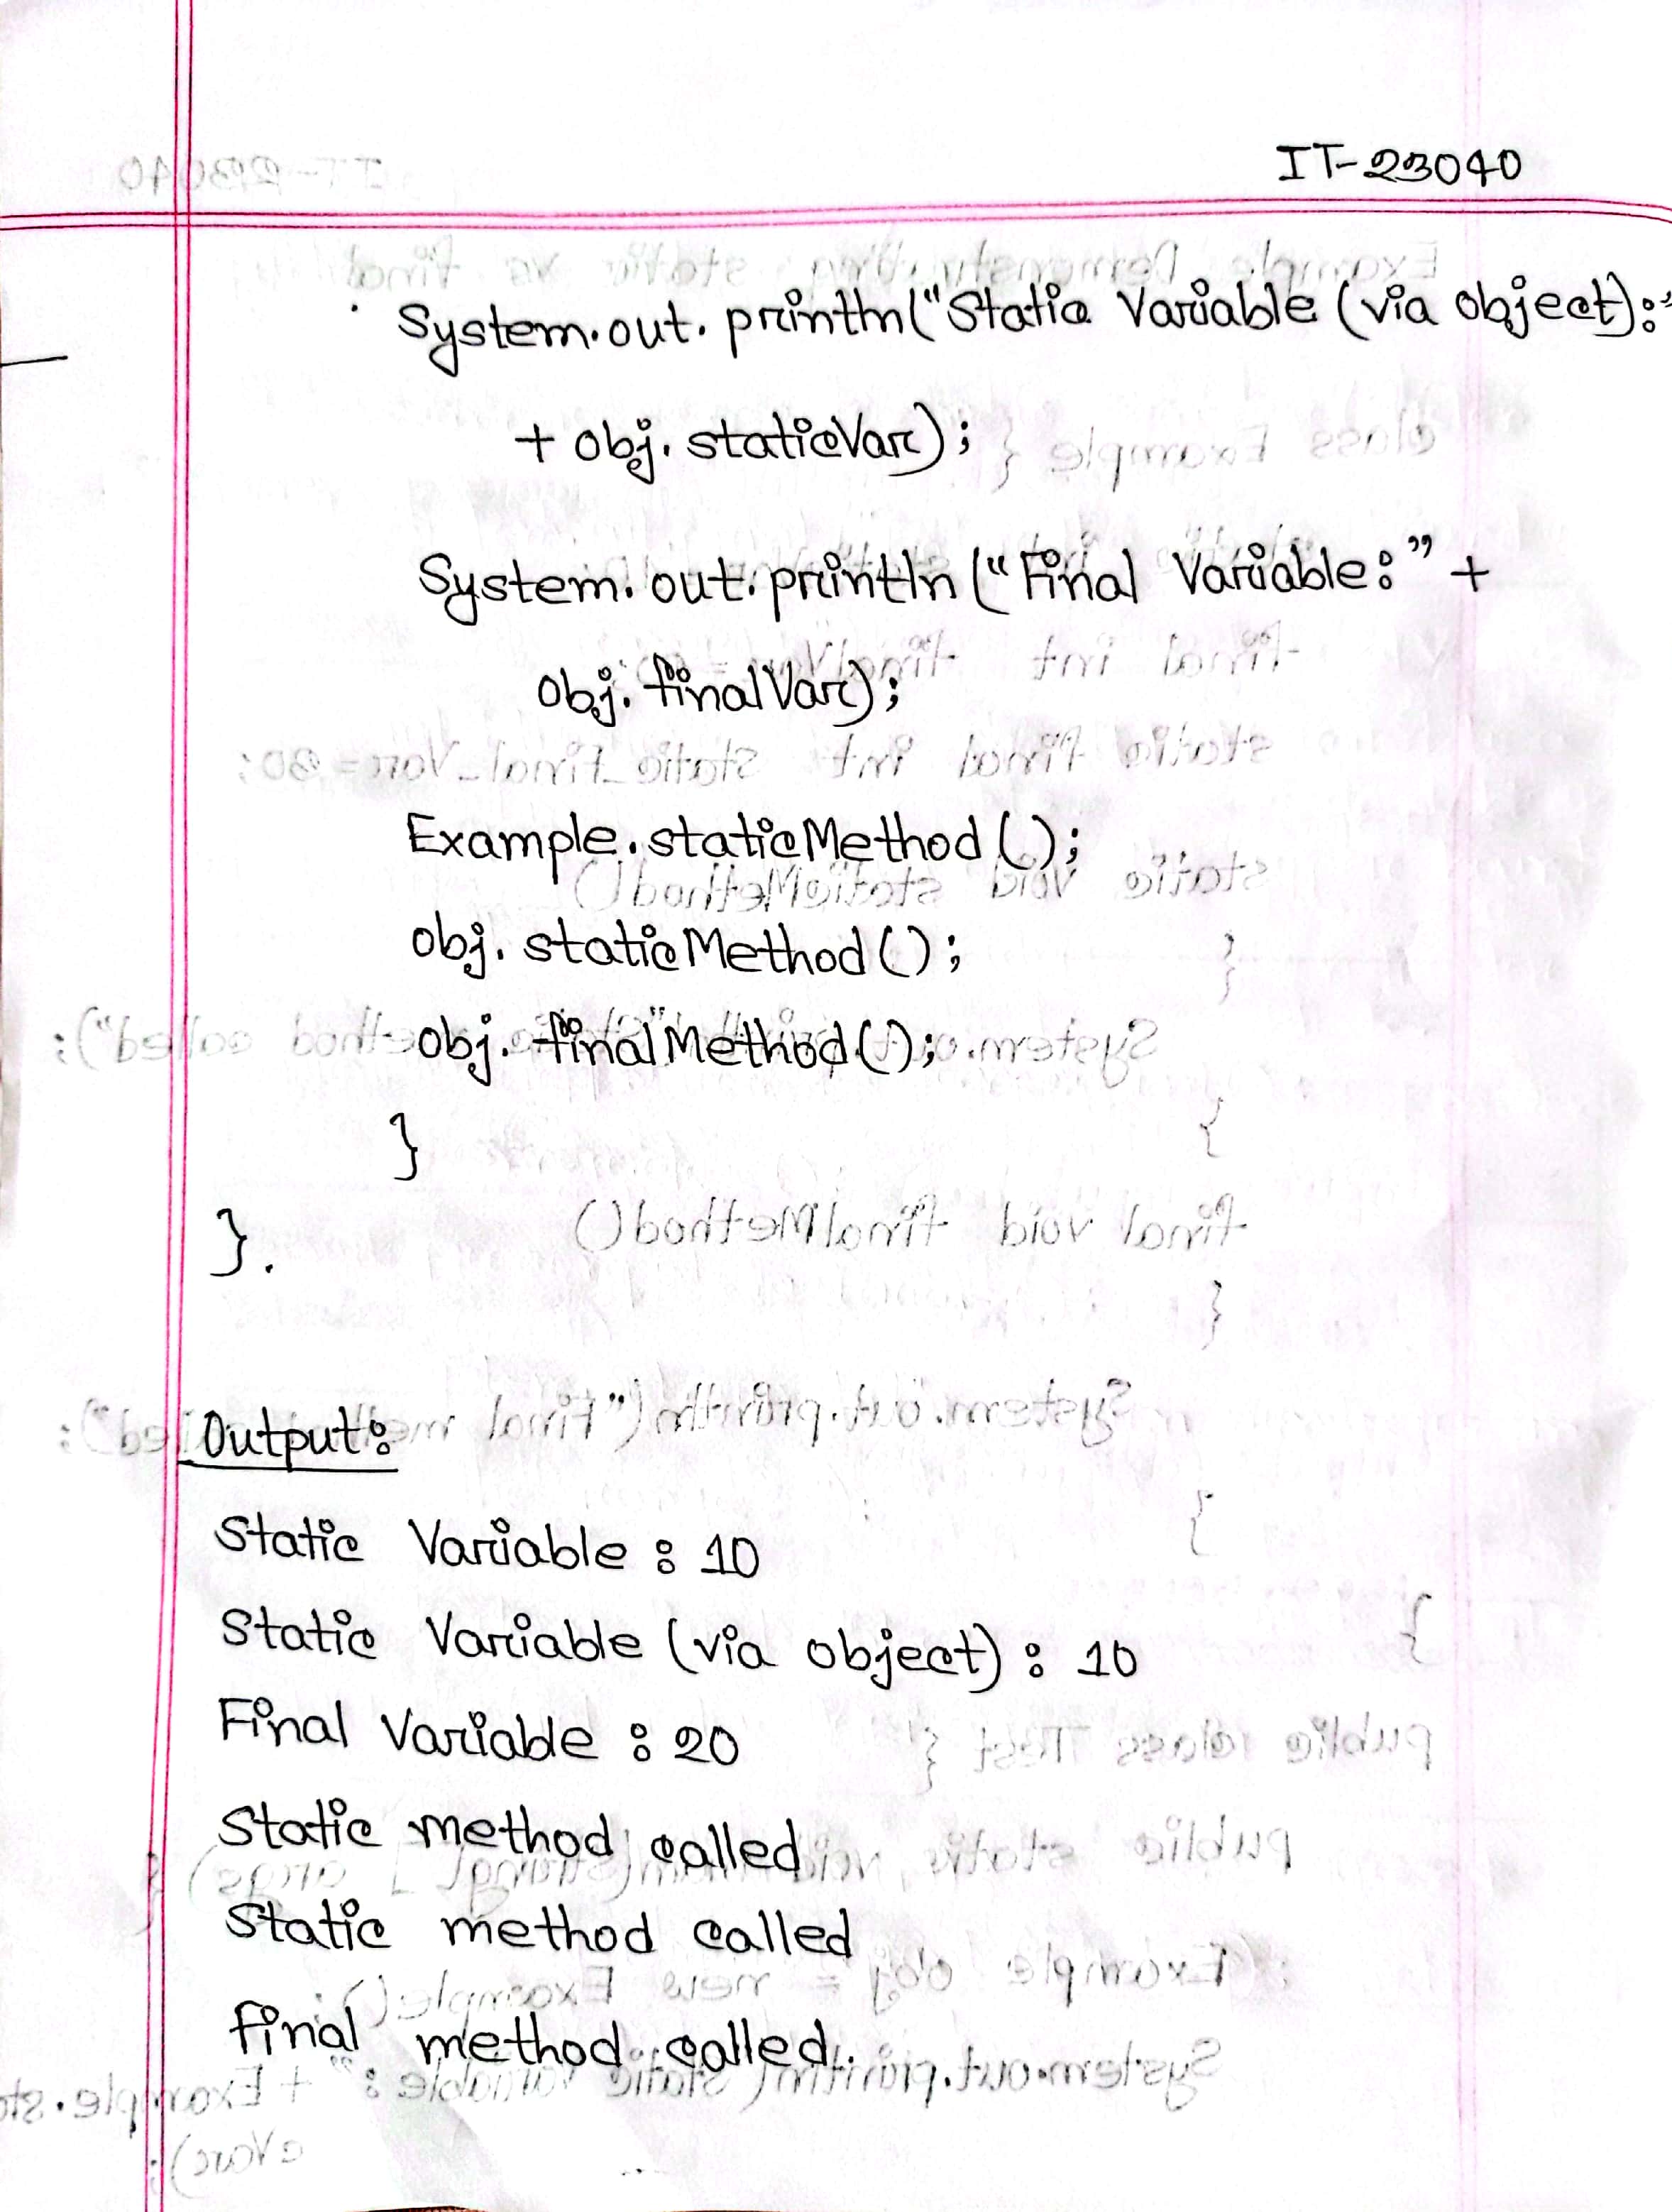 IT-23040
System.out.println("Static Variable (via object):"
+ obj.staticVar);
System.out.println("Final Variable:" +
obj.finalVar);
Example.staticMethod();
obj.staticMethod();
obj.finalMethod();
}
}.
Output:
Static Variable : 10
Static Variable (via object) : 10
Final Variable : 20
Static method called
Static method called
final method called.